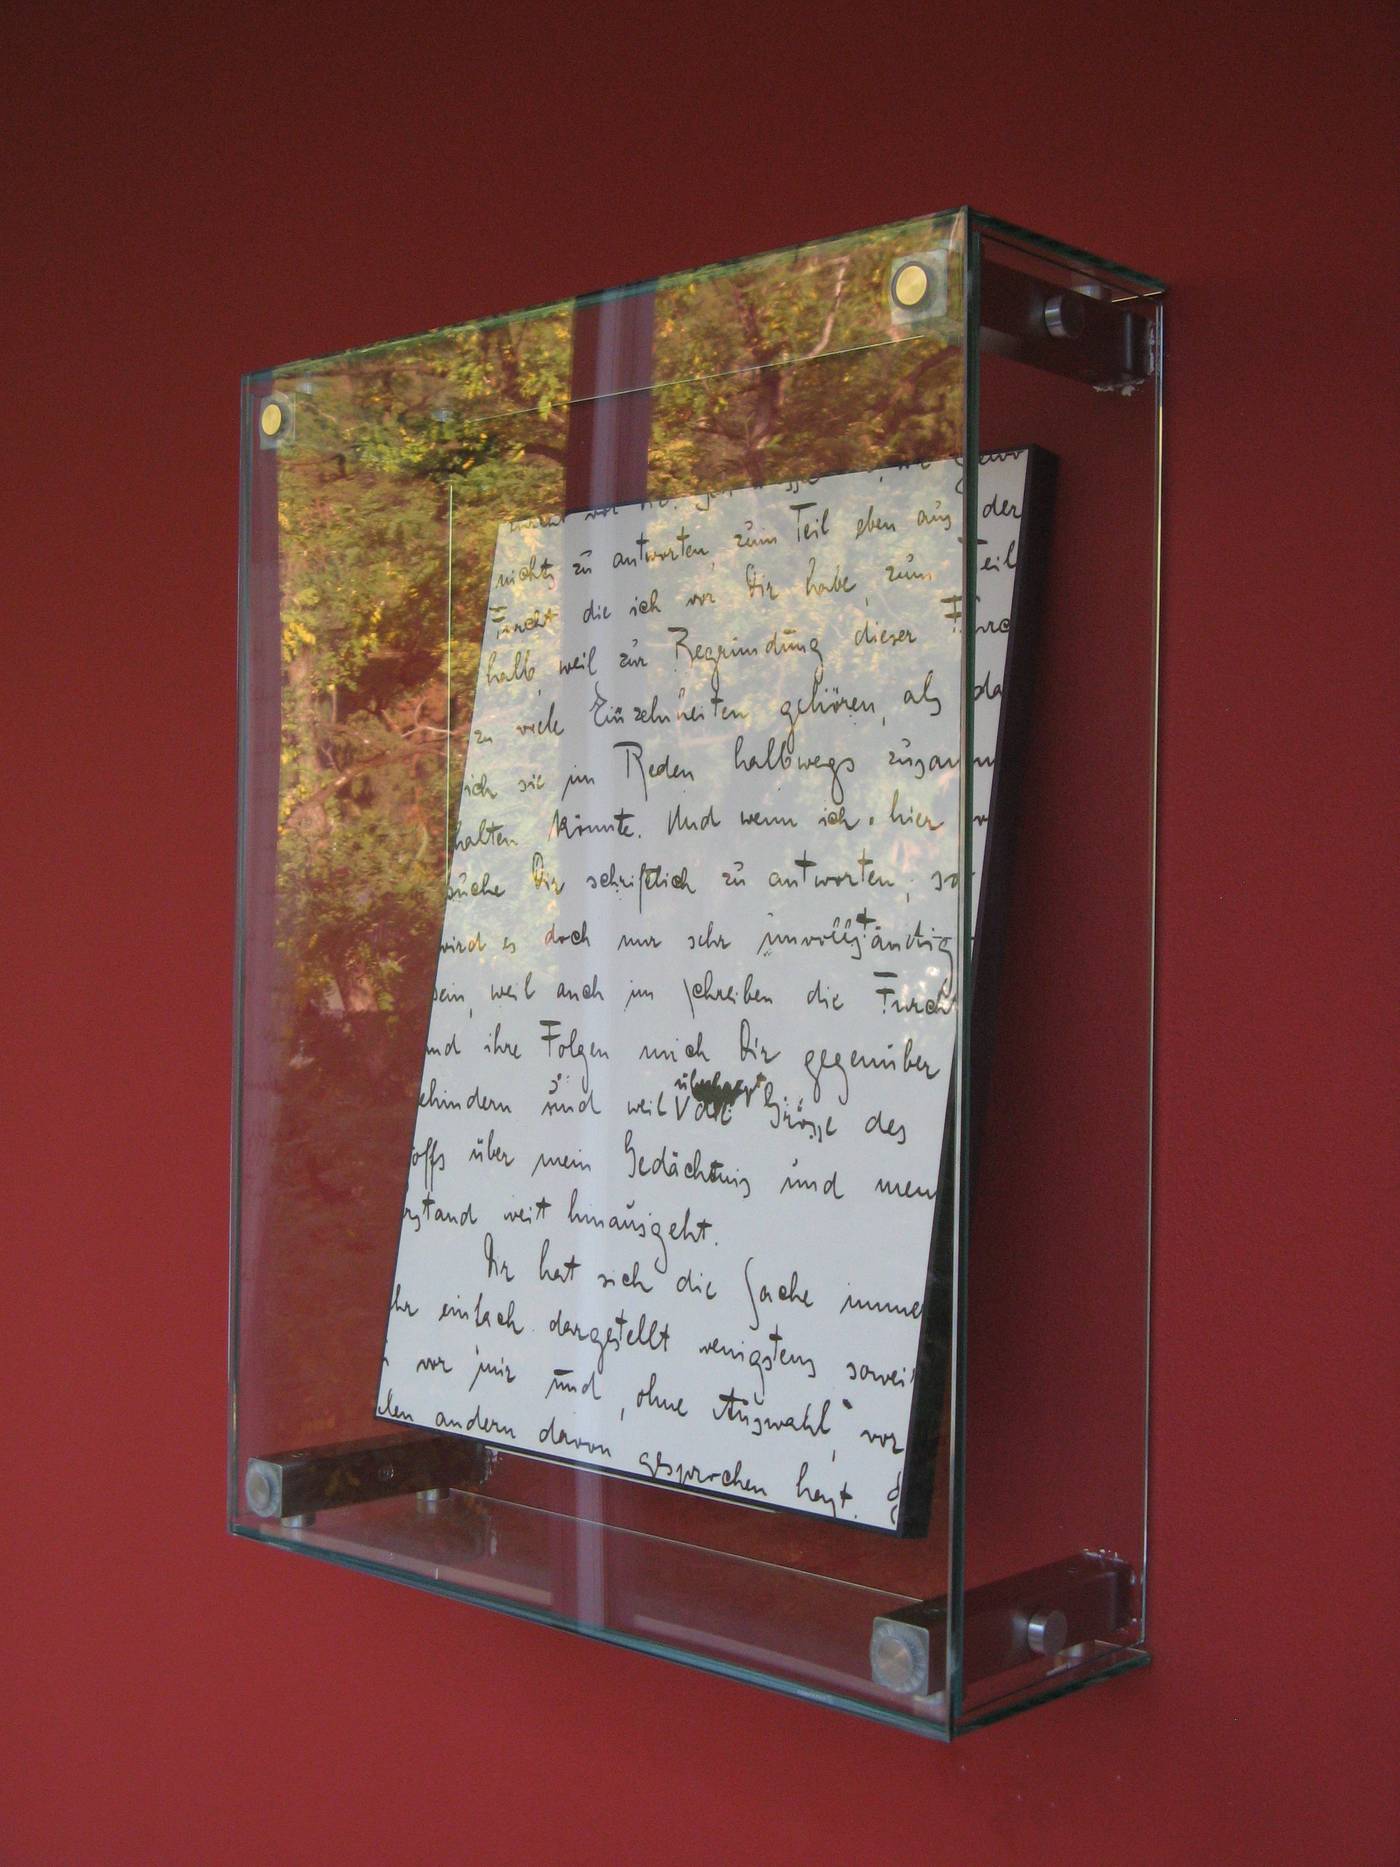 nichts zu antworten, zum Teil eben aus der
Furcht die ich vor Dir habe, zum Teil
halb, weil zur Begründung dieser Furc
zu viele Einzelnheiten gehören, als da
ich sie im Reden halbwegs zusamm
halten könnte. Und wenn ich hier
suche Dir schriftlich zu antworten, so
wird es doch nur sehr unvollständig
sein, weil auch im Schreiben die Furch
und ihre Folgen mich Dir gegenüber
ehindern und weil überhaupt die Grösse des
offs über mein Gedächtnis und mein
rstand weit hinausgeht.
Dir hat sich die Sache imme
hr einfach dargestellt wenigstens sowei
vor mir und, ohne Auswahl, vor
len andern davon gesprochen hast.